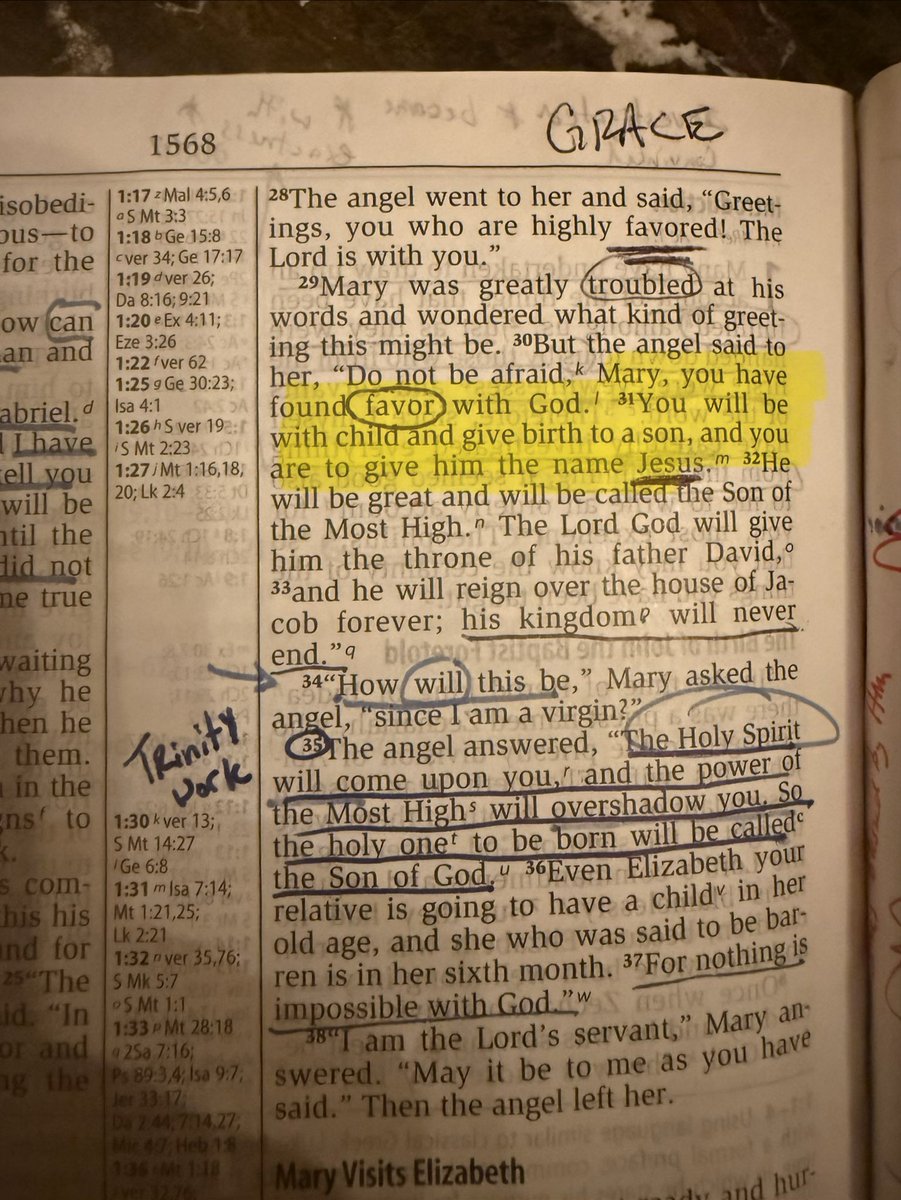 1568
GRACE
isobedi-
ous—to
for the
ow can
an and
abriel.ᵈ
I have
tell you
will be
ntil the
did not
me true
waiting
why he
hen he
them.
in the
gnsᶠ to
k.
s com-
this his
and for
25“The
id. “In
or and
ng the
1:17 z Mal 4:5,6
a S Mt 3:3
1:18 b Ge 15:8
c ver 34; Ge 17:17
1:19 d ver 26;
Da 8:16; 9:21
1:20 e Ex 4:11;
Eze 3:26
1:22 f ver 62
1:25 g Ge 30:23;
Isa 4:1
1:26 h S ver 19
i S Mt 2:23
1:27 j Mt 1:16,18,
20; Lk 2:4
Trinity
work
1:30 k ver 13;
S Mt 14:27
l Ge 6:8
1:31 m Isa 7:14;
Mt 1:21,25;
Lk 2:21
1:32 n ver 35,76;
S Mk 5:7
o S Mt 1:1
1:33 p Mt 28:18
q 2Sa 7:16;
Ps 89:3,4; Isa 9:7;
Jer 33:17;
Da 2:44; 7:14,27;
Mic 4:7; Heb 1:8
28The angel went to her and said, “Greet-
ings, you who are highly favored! The
Lord is with you.”
29Mary was greatly troubled at his
words and wondered what kind of greet-
ing this might be. 30But the angel said to
her, “Do not be afraid,ᵏ Mary, you have
found favor with God.ˡ 31You will be
with child and give birth to a son, and you
are to give him the name Jesus.ᵐ 32He
will be great and will be called the Son of
the Most High.ⁿ The Lord God will give
him the throne of his father David,ᵒ
33and he will reign over the house of Ja-
cob forever; his kingdomᵖ will never
end.”q
34“How will this be,” Mary asked the
angel, “since I am a virgin?”
35The angel answered, “The Holy Spirit
will come upon you,ʳ and the power of
the Most Highˢ will overshadow you. So
the holy oneᵗ to be born will be calledᶜ
the Son of God.ᵘ 36Even Elizabeth your
relative is going to have a childᵛ in her
old age, and she who was said to be bar-
ren is in her sixth month. 37For nothing is
impossible with God.”ʷ
38“I am the Lord’s servant,” Mary an-
swered. “May it be to me as you have
said.” Then the angel left her.
Mary Visits Elizabeth